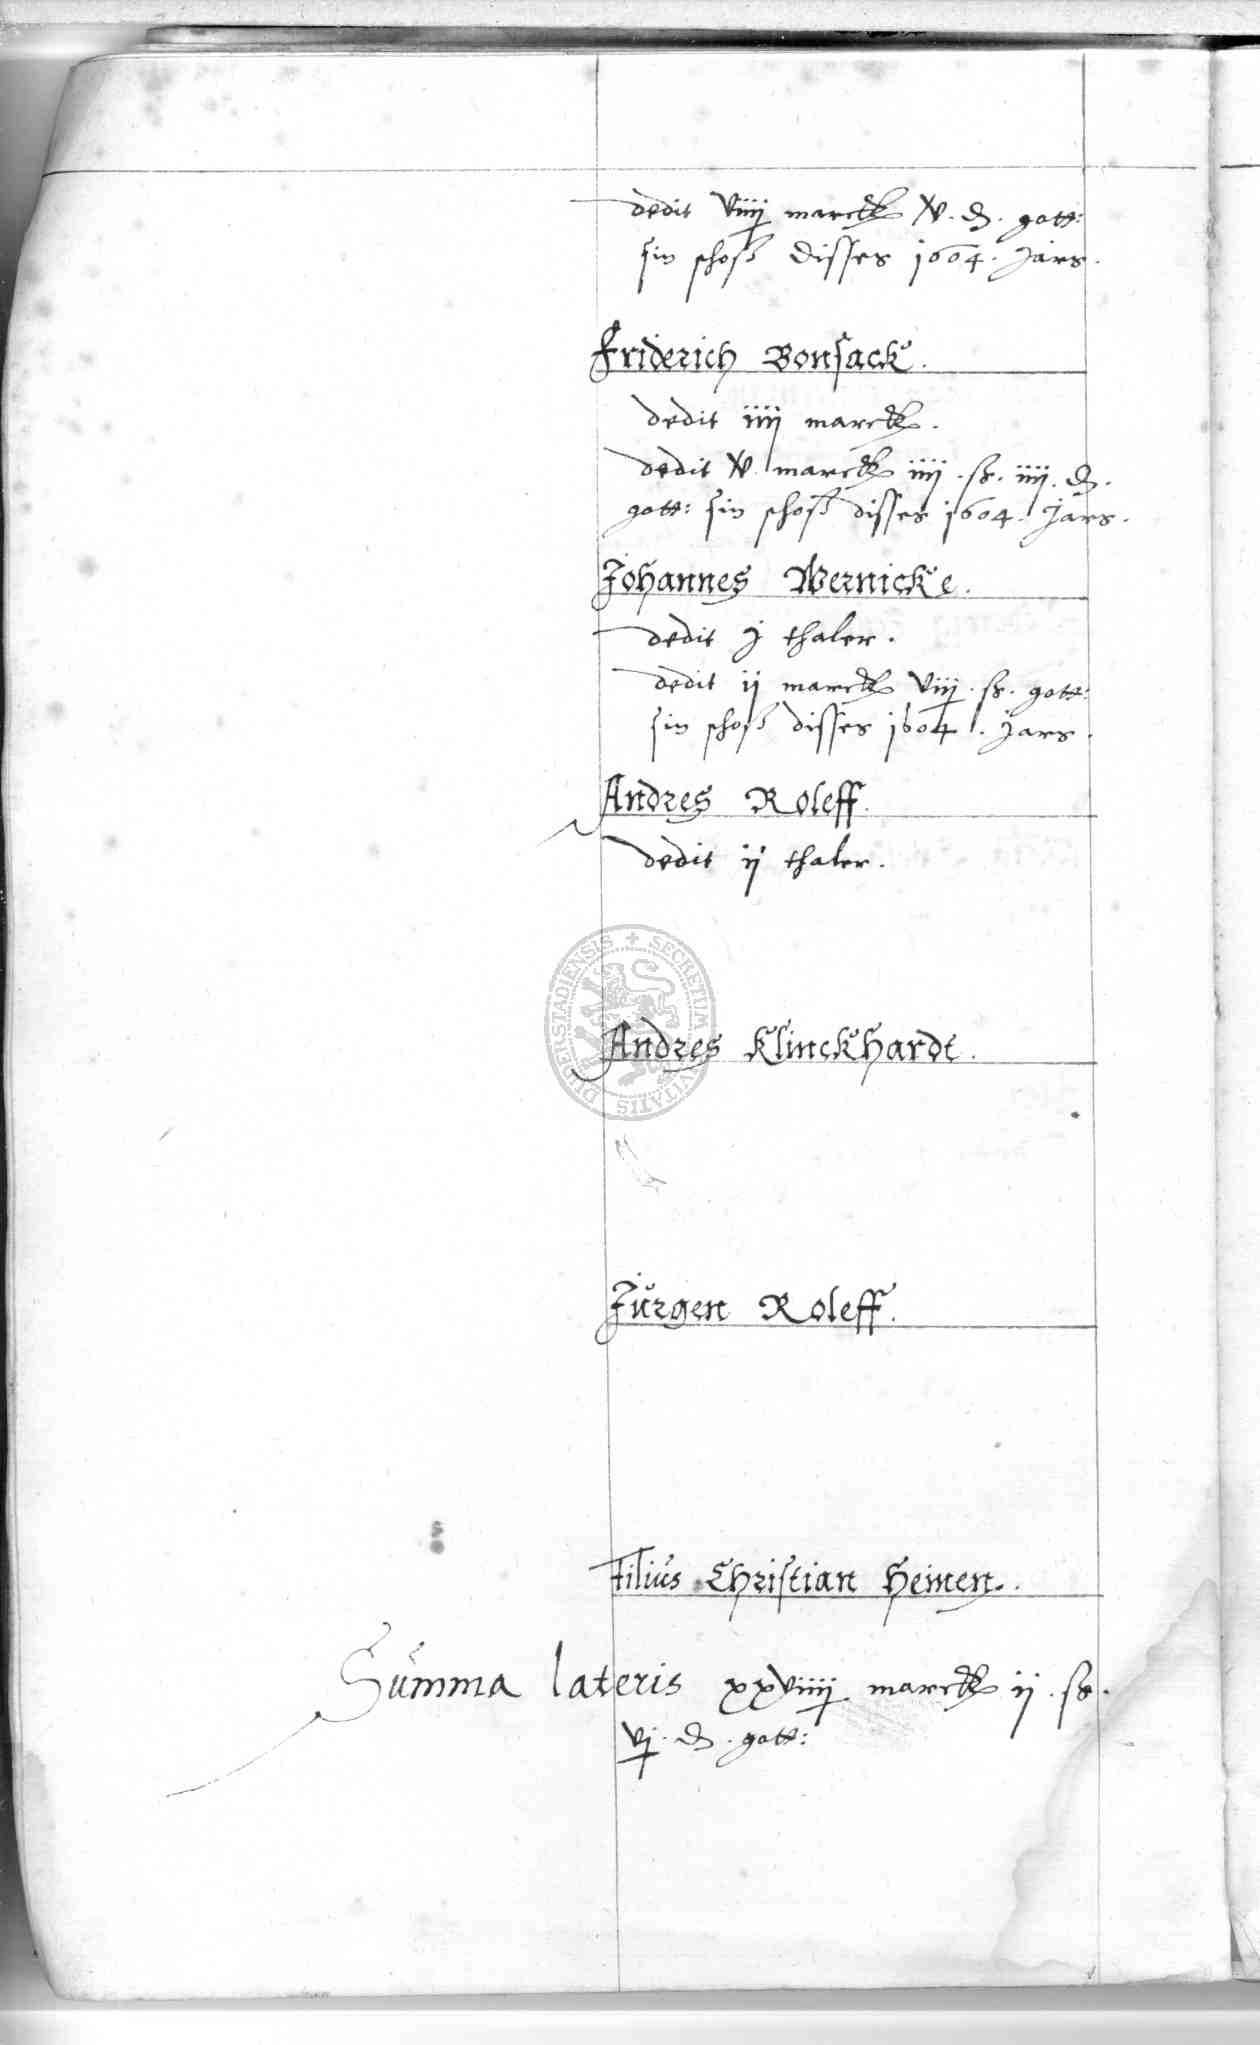 dedit viiij marck v. ₰. gott:
sin schoß disses 1604. Jars.
Friderich Bonsack.
dedit iiij marck.
dedit v. marck iiij. ß. iiij. ₰.
gott: sin schoß disses 1604. Jars.
Johannes Wernicke.
dedit j thaler.
dedit ij marck viij. ß. gott:
sin schoß disses 1604. Jars.
Andres Roleff.
dedit ij thaler.
SECRETUM CIVITATIS DUDERSTADIENSIS
Andres Klinckhardt.
Jürgen Roleff.
Filius Christian Heinen.
Summa lateris xxviiij marck ij. ß.
vj. ₰. gott: